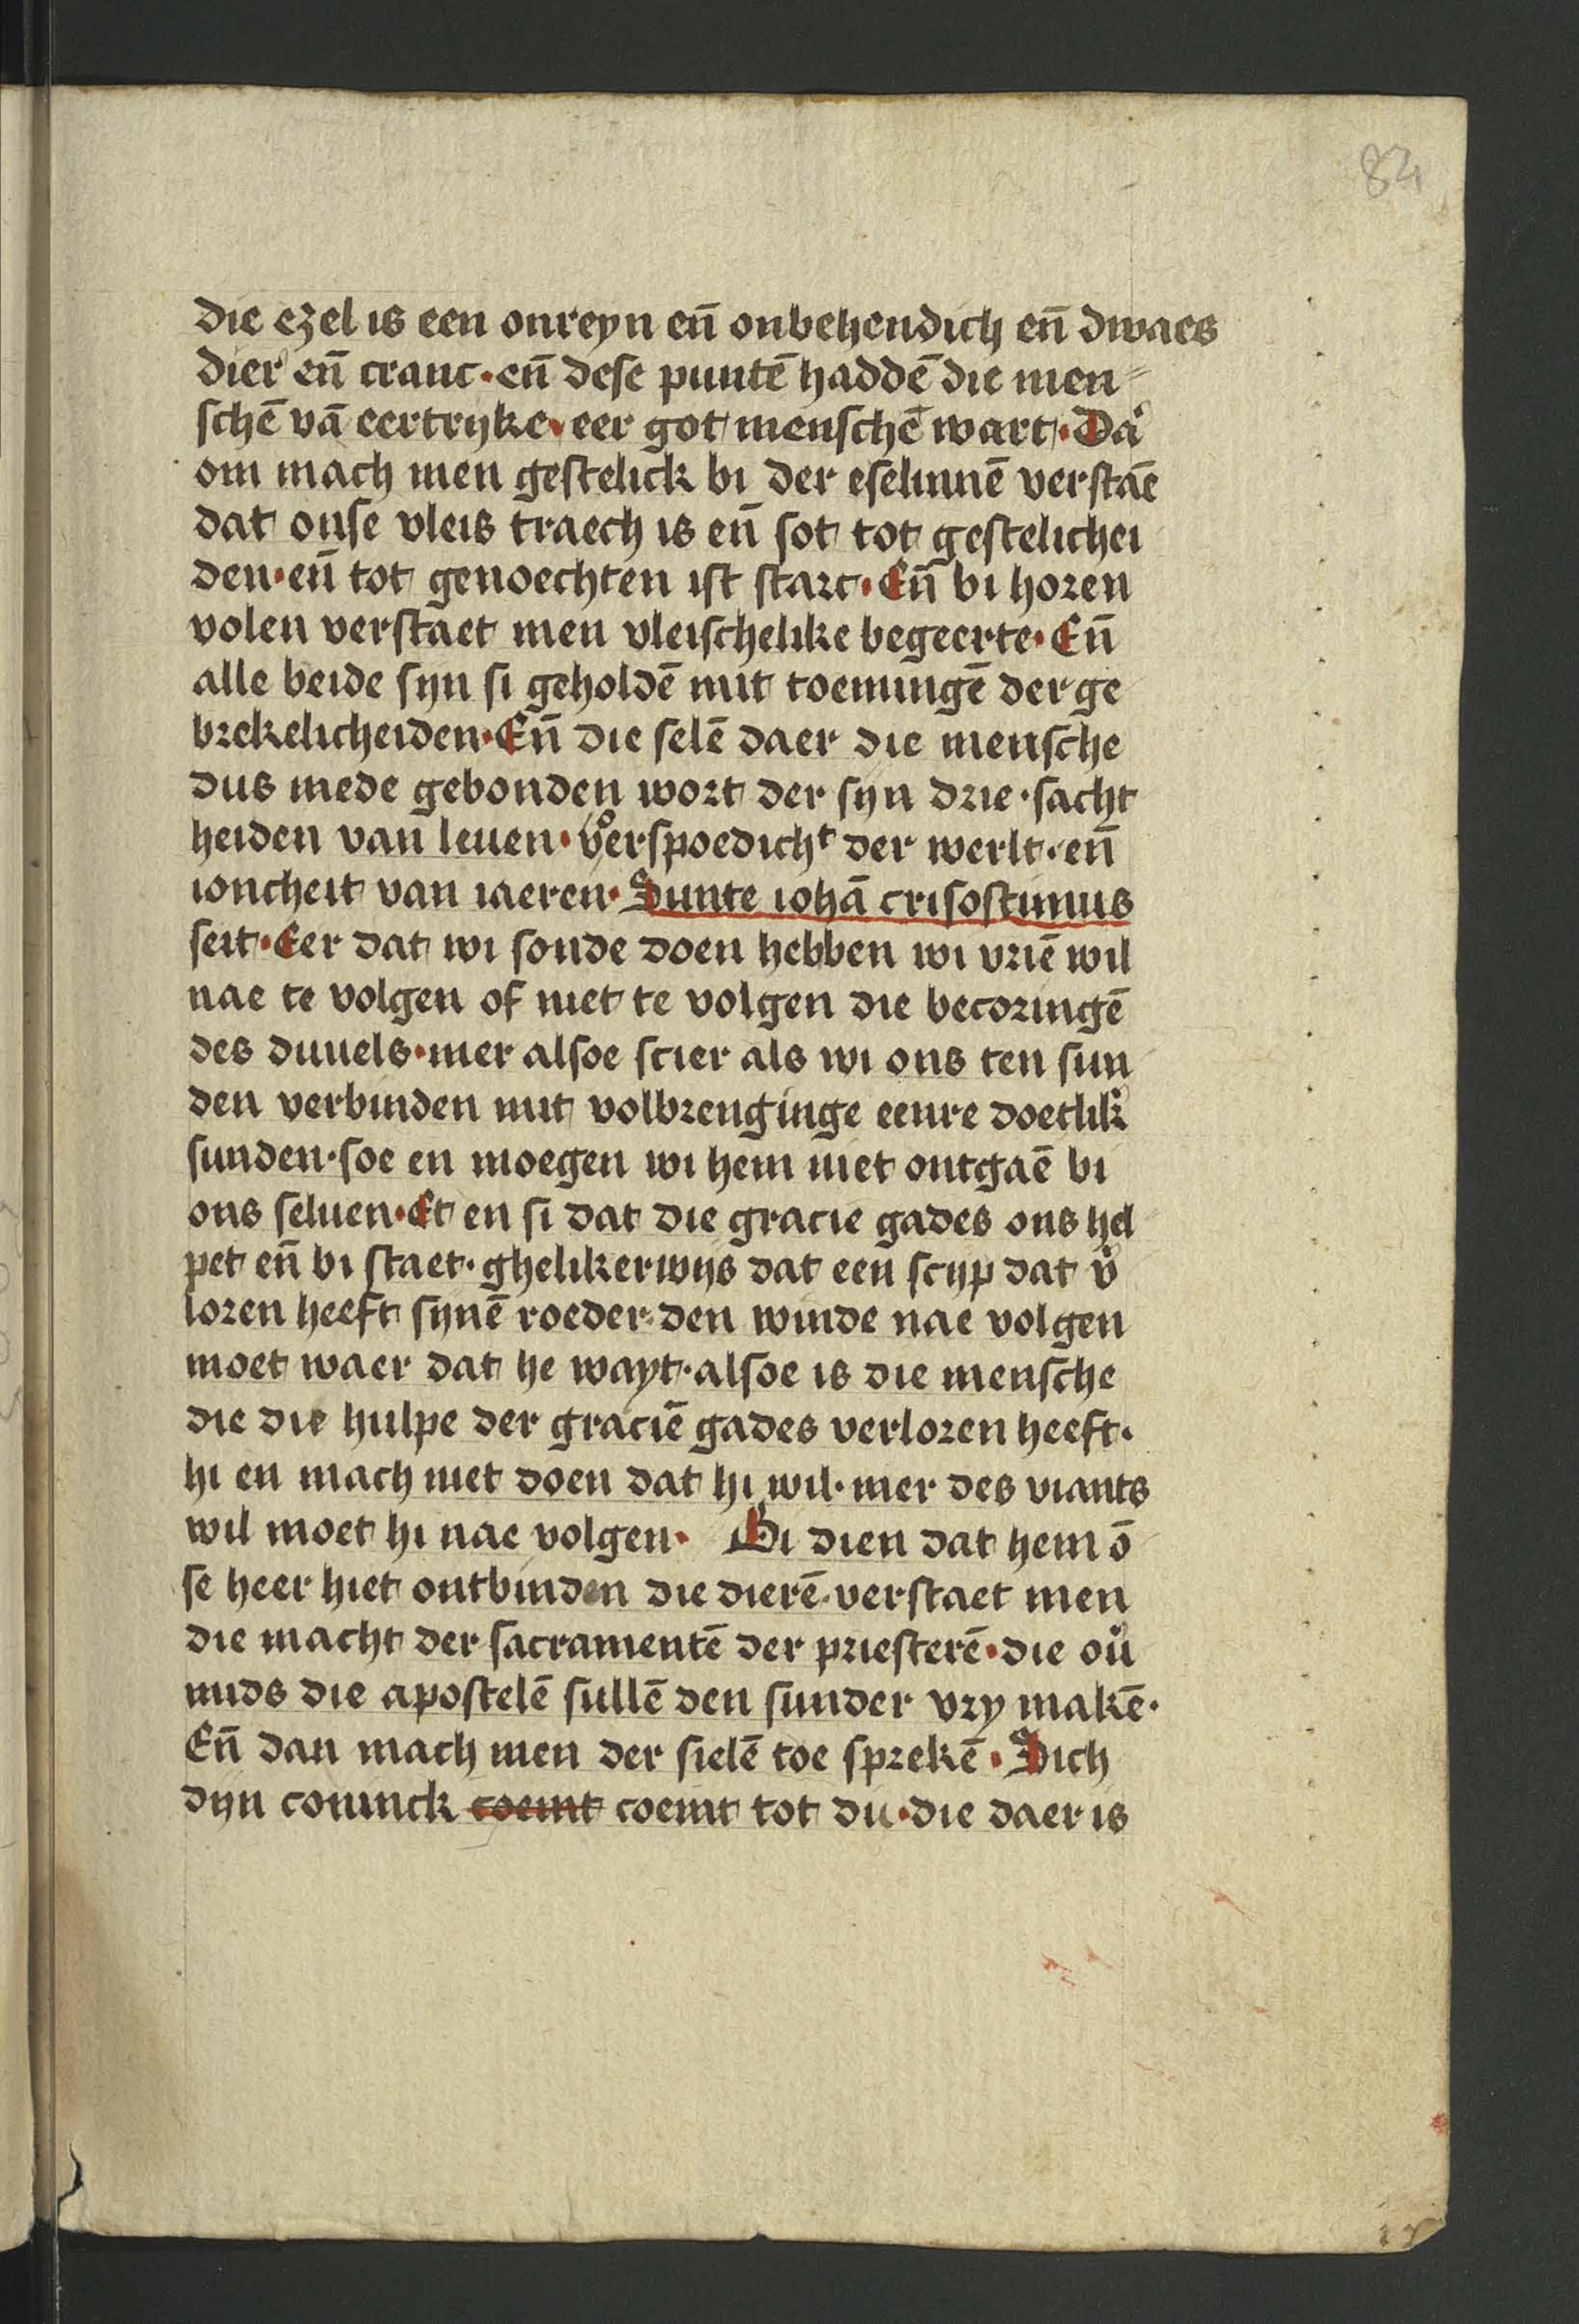 84
die ezel is een onreyn en̄ onbehendich en̄ dwaes
dier en̄ cranc · en̄ dese puntē haddē die men⸗
schē vā eertryke · eer got menschē wart · Daͬ
om mach men gestelick bi der eselinnē verstaē
dat onse vleis traech is en̄ sot tot gestelichei
den · en̄ tot genoechten ist starc · En̄ bi horen
volen verstaet men vleischelike begeerte · En̄
alle beide syn si geholdē mit toemingē der ge
brekelicheiden · En̄ die selē daer die mensche
dus mede gebonden wort der syn drie · sacht
heiden van leuen · voerspoedichᵗ der werlt · en̄
ioncheit van iaeren · Sunte iohā crisostimus
seit · Eer dat wi sonde doen hebben wi vriē wil
nae te volgen of niet te volgen die becoringē
des duuels · mer alsoe scier als wi ons ten sun
den verbinden mit volbrenginge eenre doetlikͬ
sunden · soe en moegen wi hem niet ontgaē bi
ons seluen · Et en si dat die gracie gades ons hel
pet en̄ bi staet · ghelikerwijs dat een scyp dat vͬ
loren heeft synē roeder · den winde nae volgen
moet waer dat he wayt · alsoe is die mensche
die die hulpe der graciē gades verloren heeft ·
hi en mach niet doen dat hi wil · mer des viants
wil moet hi nae volgen · Bi dien dat hem ō
se heer hiet ontbinden die dierē · verstaet men
die macht der sacramentē der priesterē · die ouͬ
mids die apostelē sullē den sunder vry makē ·
En̄ dan mach men der sielē toe sprekē · Sich
dyn coninck coemt coemt tot du · die daer is